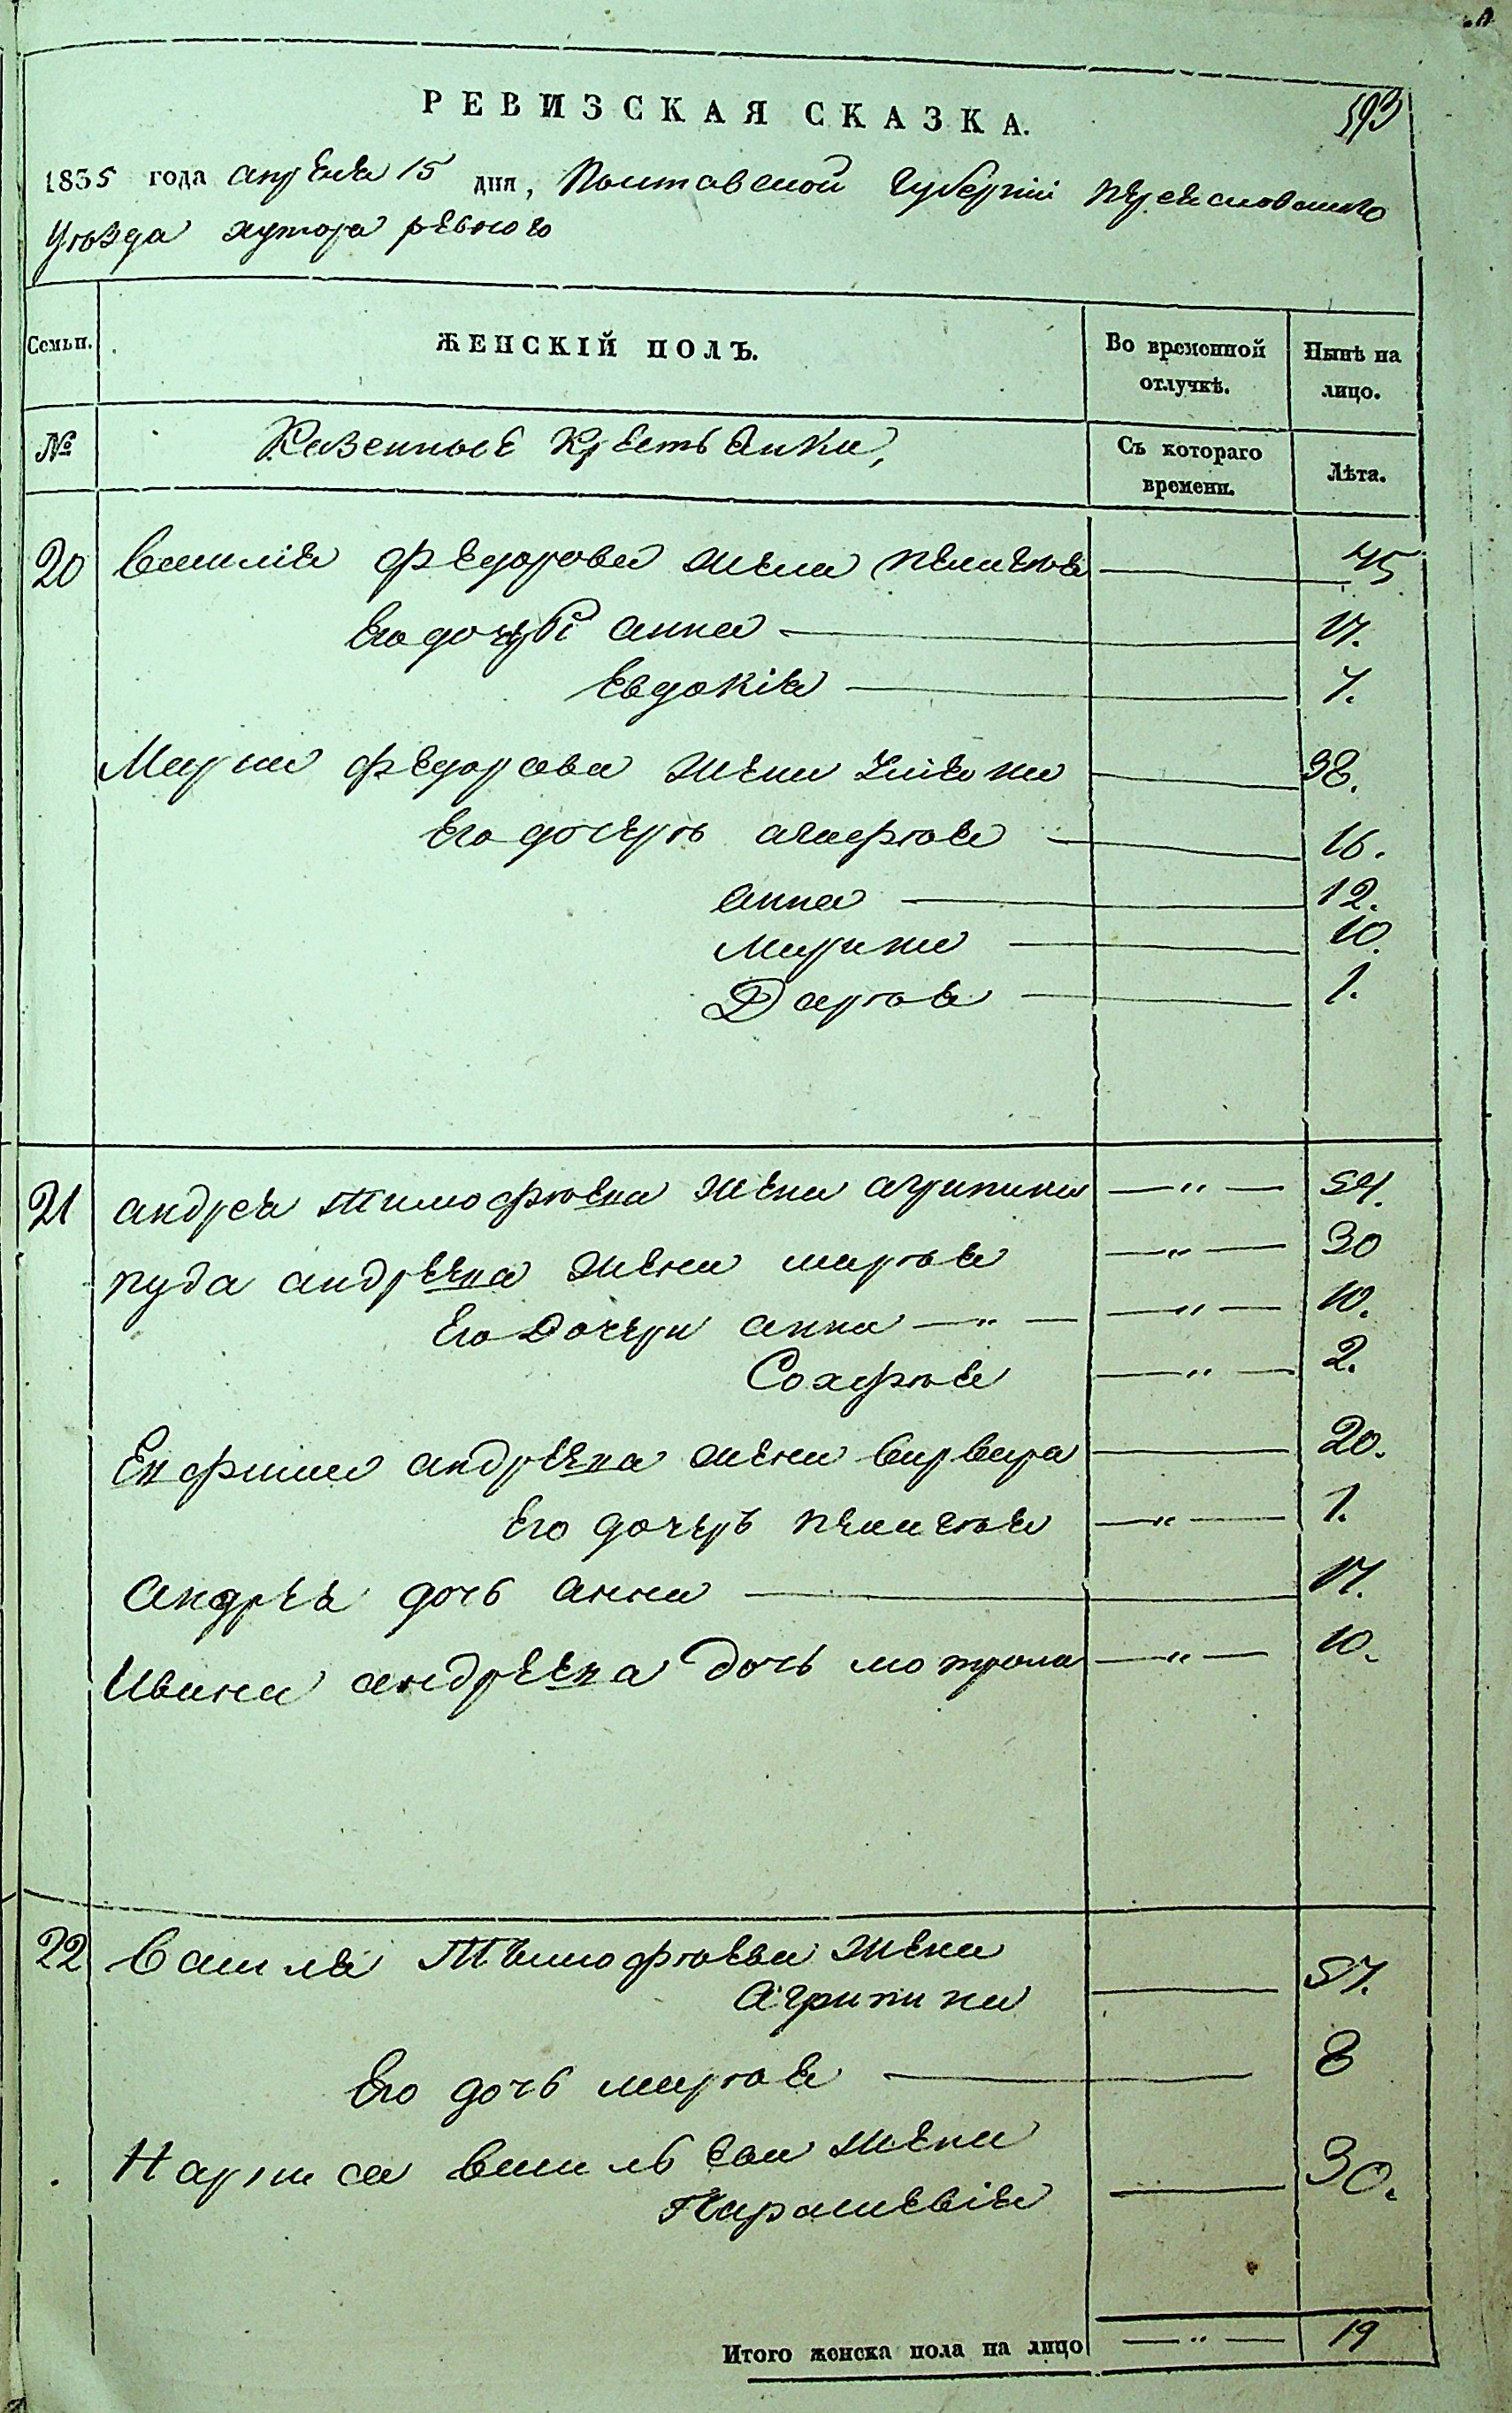 593
РЕВИЗСКАЯ СКАЗКА.
1835 года апреля 15 дня, Полтавской Губернии Переяславского
Уезда хутора
Семьи. ЖЕНСКІЙ ПОЛЪ. Во временной отлучкѣ. Нынѣ на лицо.
№ Казенные Крестьянки, Съ котораго времени. Лѣта.
20 Василия Федорова жена пелагея 45
Его дочери анна 17.
Евдокія 7.
Марка Федорова жена улияна 38.
Его дочерь агафия 16.
анна 12.
марина 10.
Дария 1.
21 андрея Тимофеева жена агрипина — " — 54.
андреева жена мария — " — 30
Его Дочери анна — " — — " — 10.
София — " — 2.
Ефима андреева жена варвара 20.
Его дочерь пелагея — " — 1.
андрея дочь анна 17.
Ивана андреева дочь мотрона — " — 10.
22 Василя Тимофеева жена
Агрипина 57.
Его дочь мария 8
василева жена
Параскевія 30.
Итого женска пола на лицо — " — 19